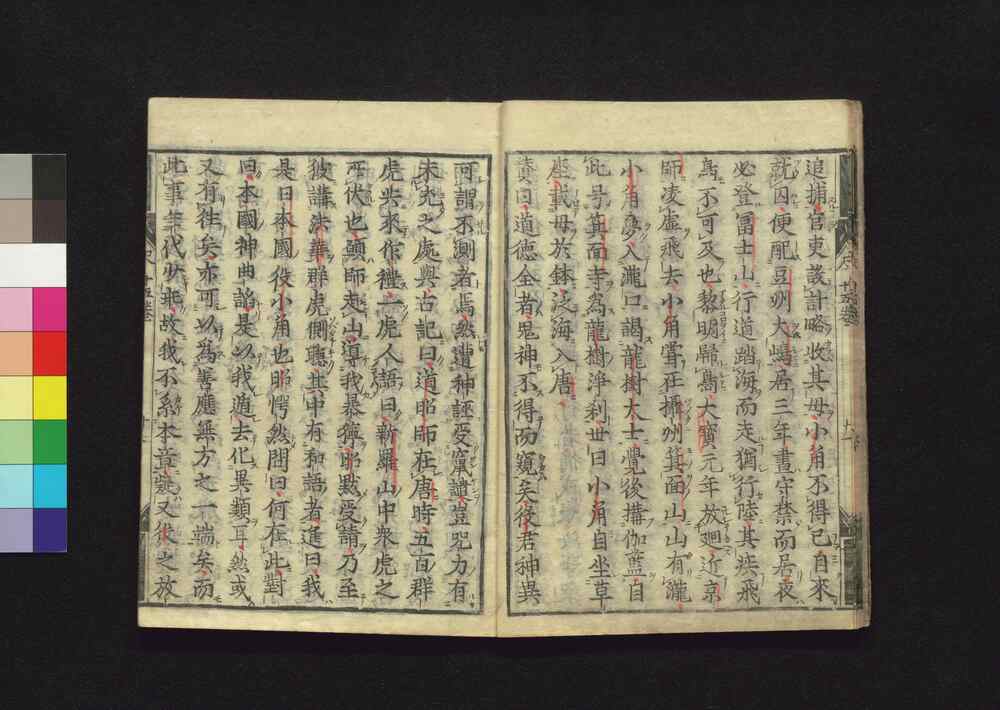 追捕官吏設計略收其母小角不得已自來
就囚便配豆州大嶋居三年晝守禁而居夜
必登冨士山行道踏海而走猶行陸其疾飛
鳥不可及也黎明歸嶋大寶元年放廻近京
師凌虛飛去小角嘗在攝州箕面山山有瀧
小角夢入瀧口謁龍樹大士覺後搆伽藍自
此号箕面寺爲龍樹淨刹世曰小角自坐草
座載母於鉢泛海入唐
賛曰道德全者鬼神不得而窺矣役君神異
可謂不測者焉然遭神誣受竄謫豈咒力有
未充之處與古記曰道昭師在唐時五百群
虎共來作禮一虎人語曰新羅山中衆虎之
所伏也願師走山導我暴獰昭默受請乃至
彼講法華群虎側聽其中有和語者進曰我
是日本國役小角也昭愕然問曰何在此對
曰本國神曲諂是以我遁去化異類耳然或
又有徃矣亦可以爲善應無方之一端矣而
此事年代少乖故我不系本章竊又役之放